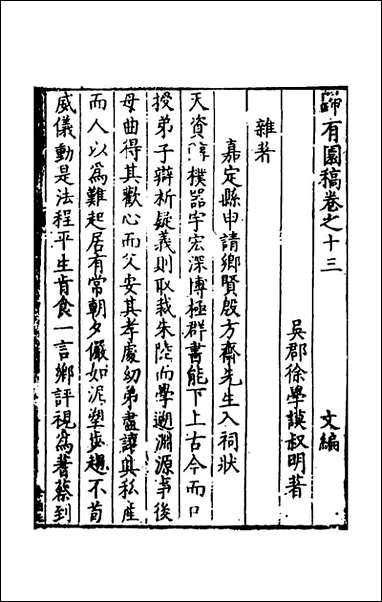 歸有園稿卷之十三　文編
吳郡徐學謨叔明著
雜著
嘉定縣申請鄉賢殷方齋先生入祠狀
天資淳樸器宇宏深博極群書能下上古今而口
授弟子辯析疑義則取裁朱陸而學遡淵源事後
母曲得其歡心而父安其孝處幼弟盡讓其私產
而人以為難起居有常朝夕儼如泥塑步趨不苟
威儀動是法程平生肯食一言鄉評視為蓍蔡到